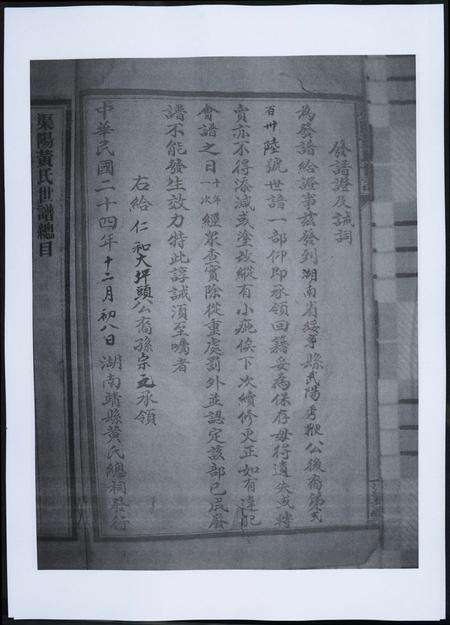 發譜證及誡詞
為發譜給證事茲發到湖南省綏寧縣武陽考獻公後裔第弍
百卅陸號世譜一部仰即承領回籍妥為保存毋得遺失或轉
賣亦不得添減或塗改縱有小疵俟下次續修更正如有違配
會譜之日十年一次經眾查實除從重處罰外並認定該部已屬廢
譜不能發生效力特此諄誡須至囑者
右給仁和大坪頭公裔孫宗元承領
中華民國二十四年十二月初八日湖南靖縣黃氏總祠發行
渠陽黃氏世譜總目